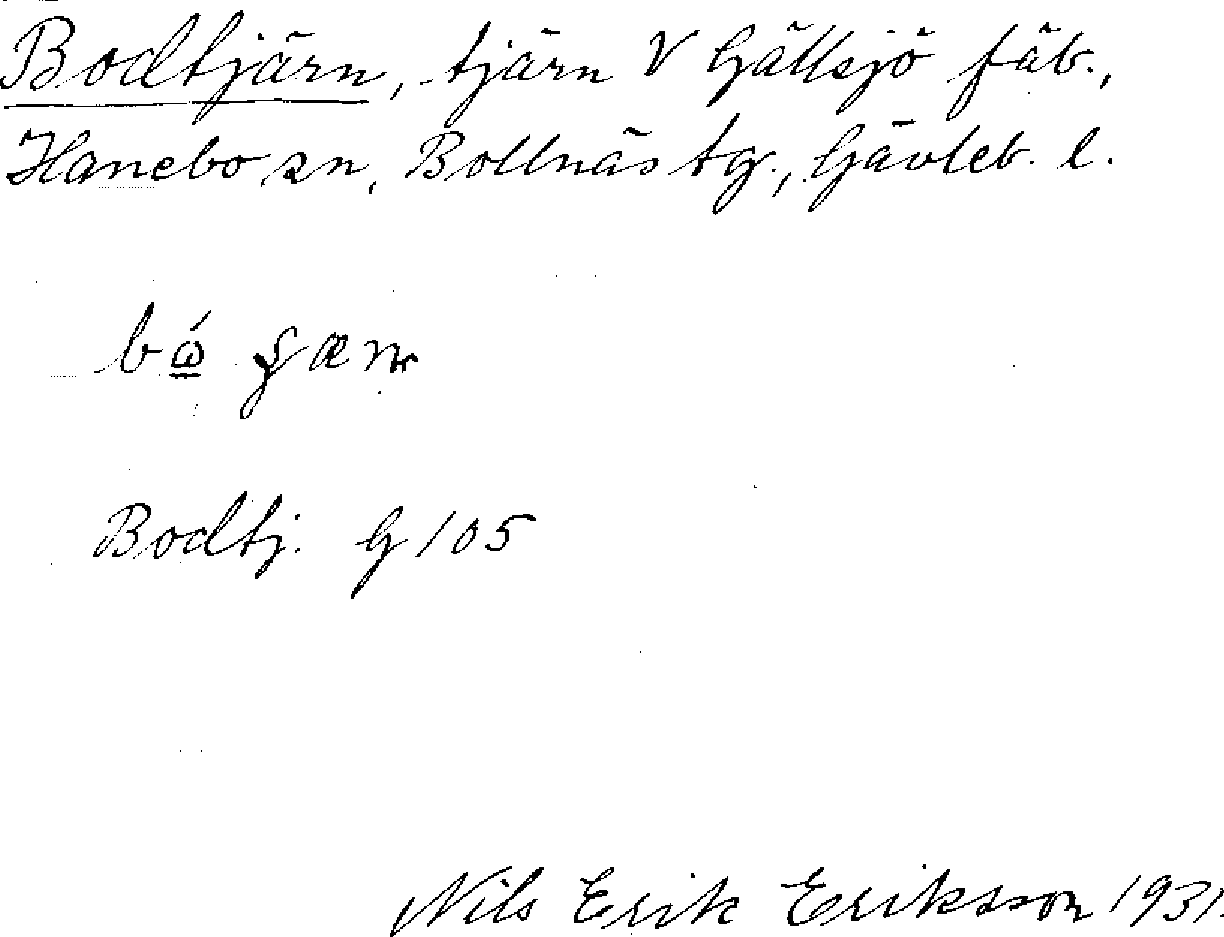 Bodtjärn, tjärn V Gällsjö fäb.,
Hanebo sn, Bollnäs tg., Gävleb. l.
Bodtj. G 105
Nils Erik Eriksson 1931.